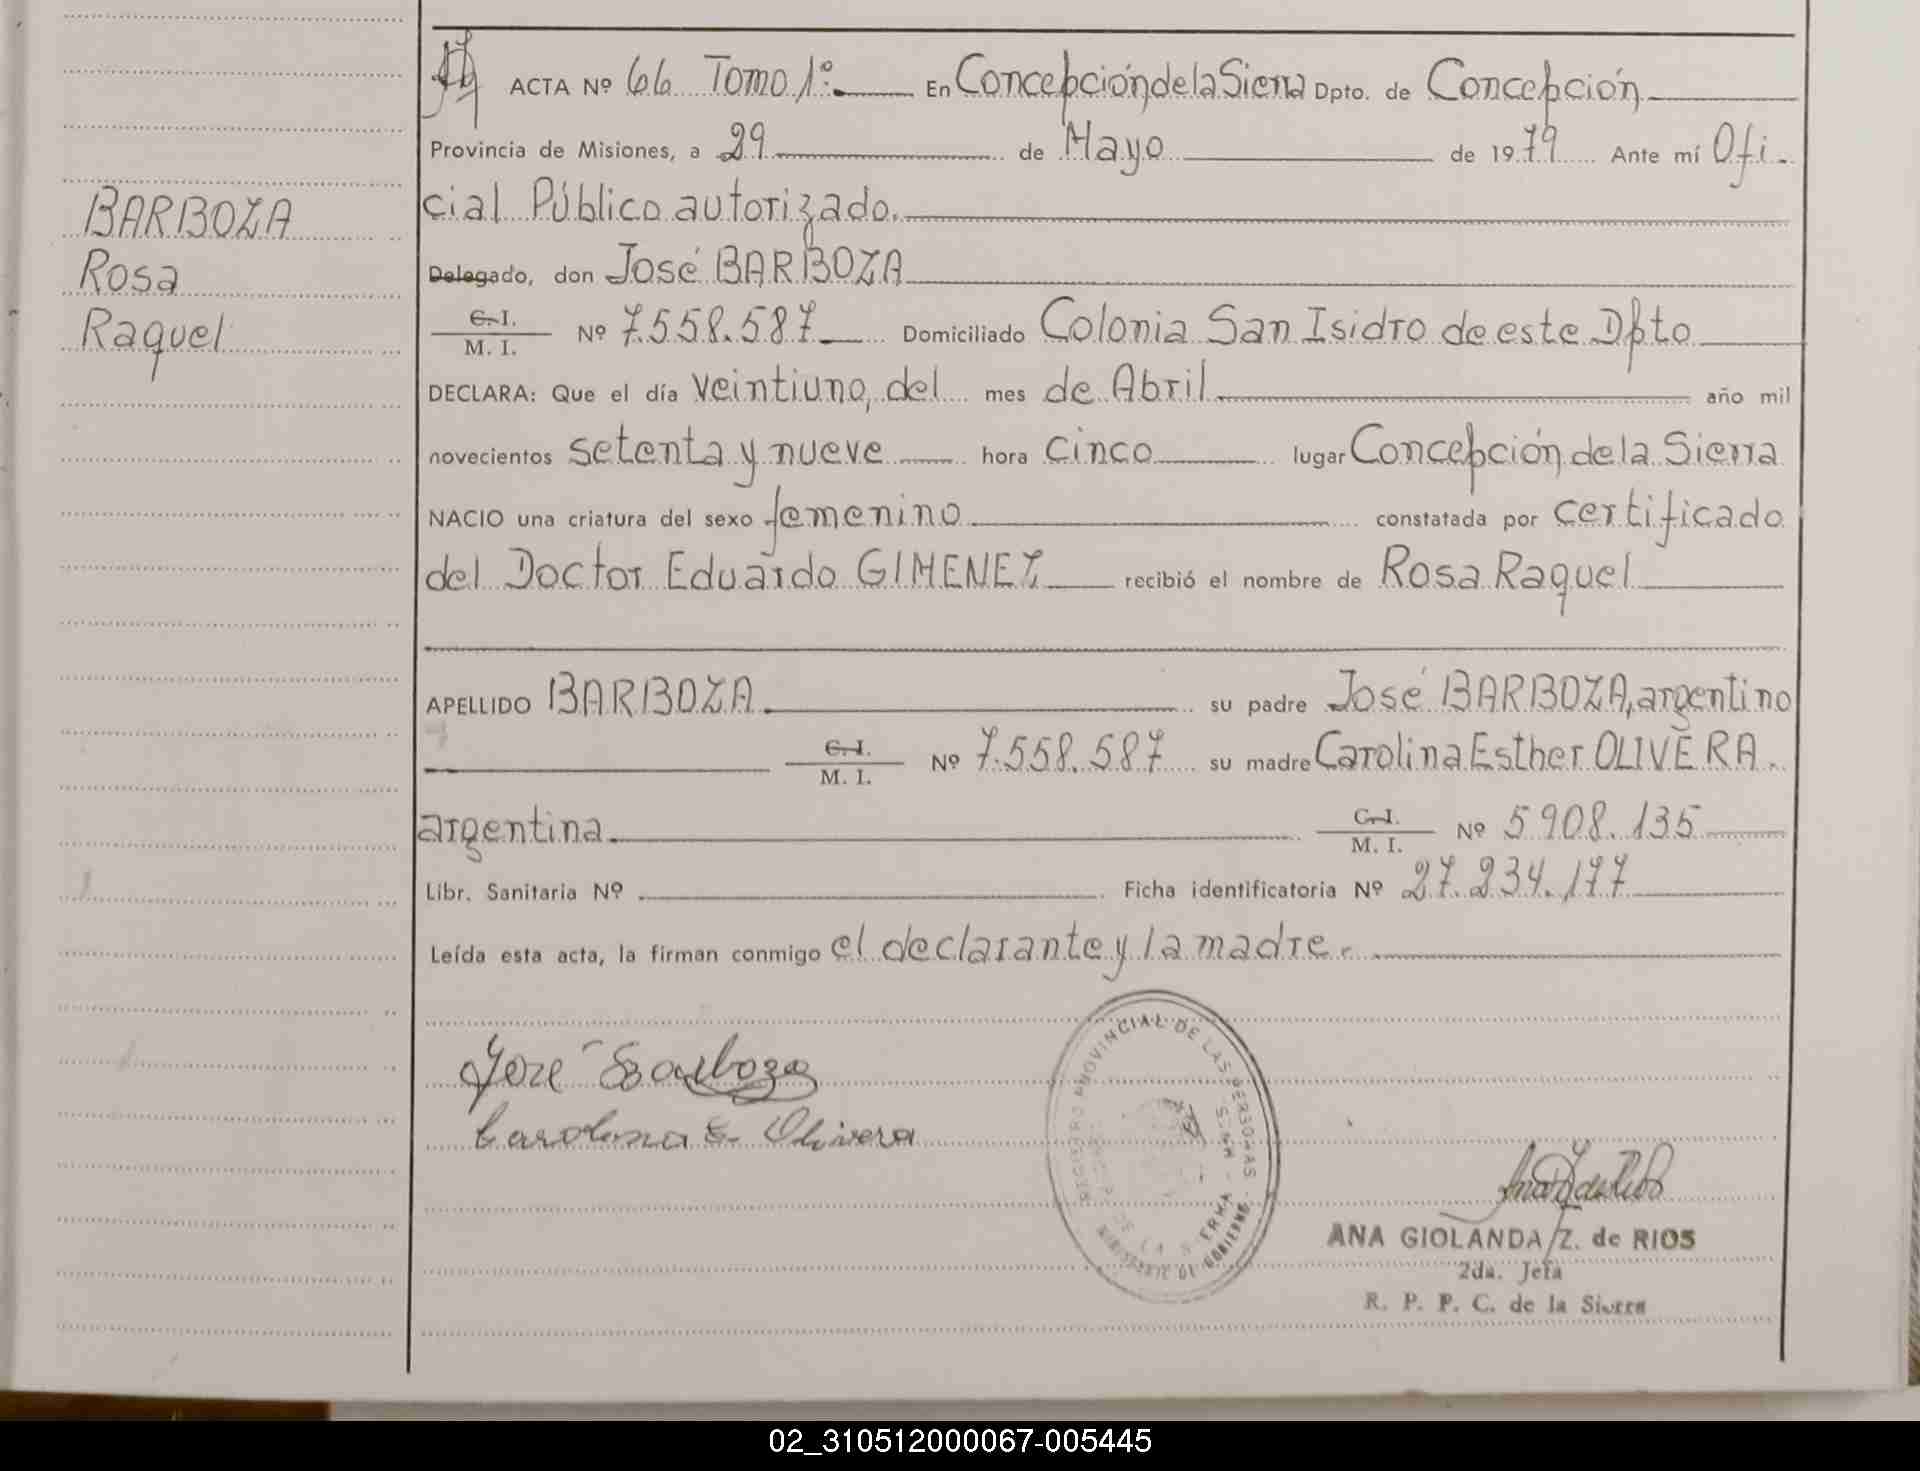 ACTA Nº 66 Tomo 1º En Concepción de la Sierra Dpto. de Concepción
Provincia de Misiones, a 29 de Mayo de 1979 Ante mí Ofi-
cial Público autorizado.
BARBOZA
Rosa
Raquel
Delegado, don José BARBOZA
C. I. / M. I. Nº 7.558.587 Domiciliado Colonia San Isidro de este Dpto
DECLARA: Que el día veintiuno, del mes de Abril año mil
novecientos setenta y nueve hora cinco lugar Concepción de la Sierra
NACIO una criatura del sexo femenino constatada por certificado
del Doctor Eduardo GIMENEZ recibió el nombre de Rosa Raquel
APELLIDO BARBOZA su padre José BARBOZA, argentino
C. I. / M. I. Nº 7.558.587 su madre Carolina Esther OLIVERA.
argentina. C. I. / M. I. Nº 5.908.135
Libr. Sanitaria Nº Ficha identificatoria Nº 27.234.177
Leída esta acta, la firman conmigo el declarante y la madre.
José Barboza
Carolina E. Olivera
REGISTRO PROVINCIAL DE LAS PERSONAS
DE LA SIERRA
MINISTERIO DE GOBIERNO
ANA GIOLANDA Z. de RIOS
2da. Jefa
R. P. P. C. de la Sierra
02_310512000067-005445